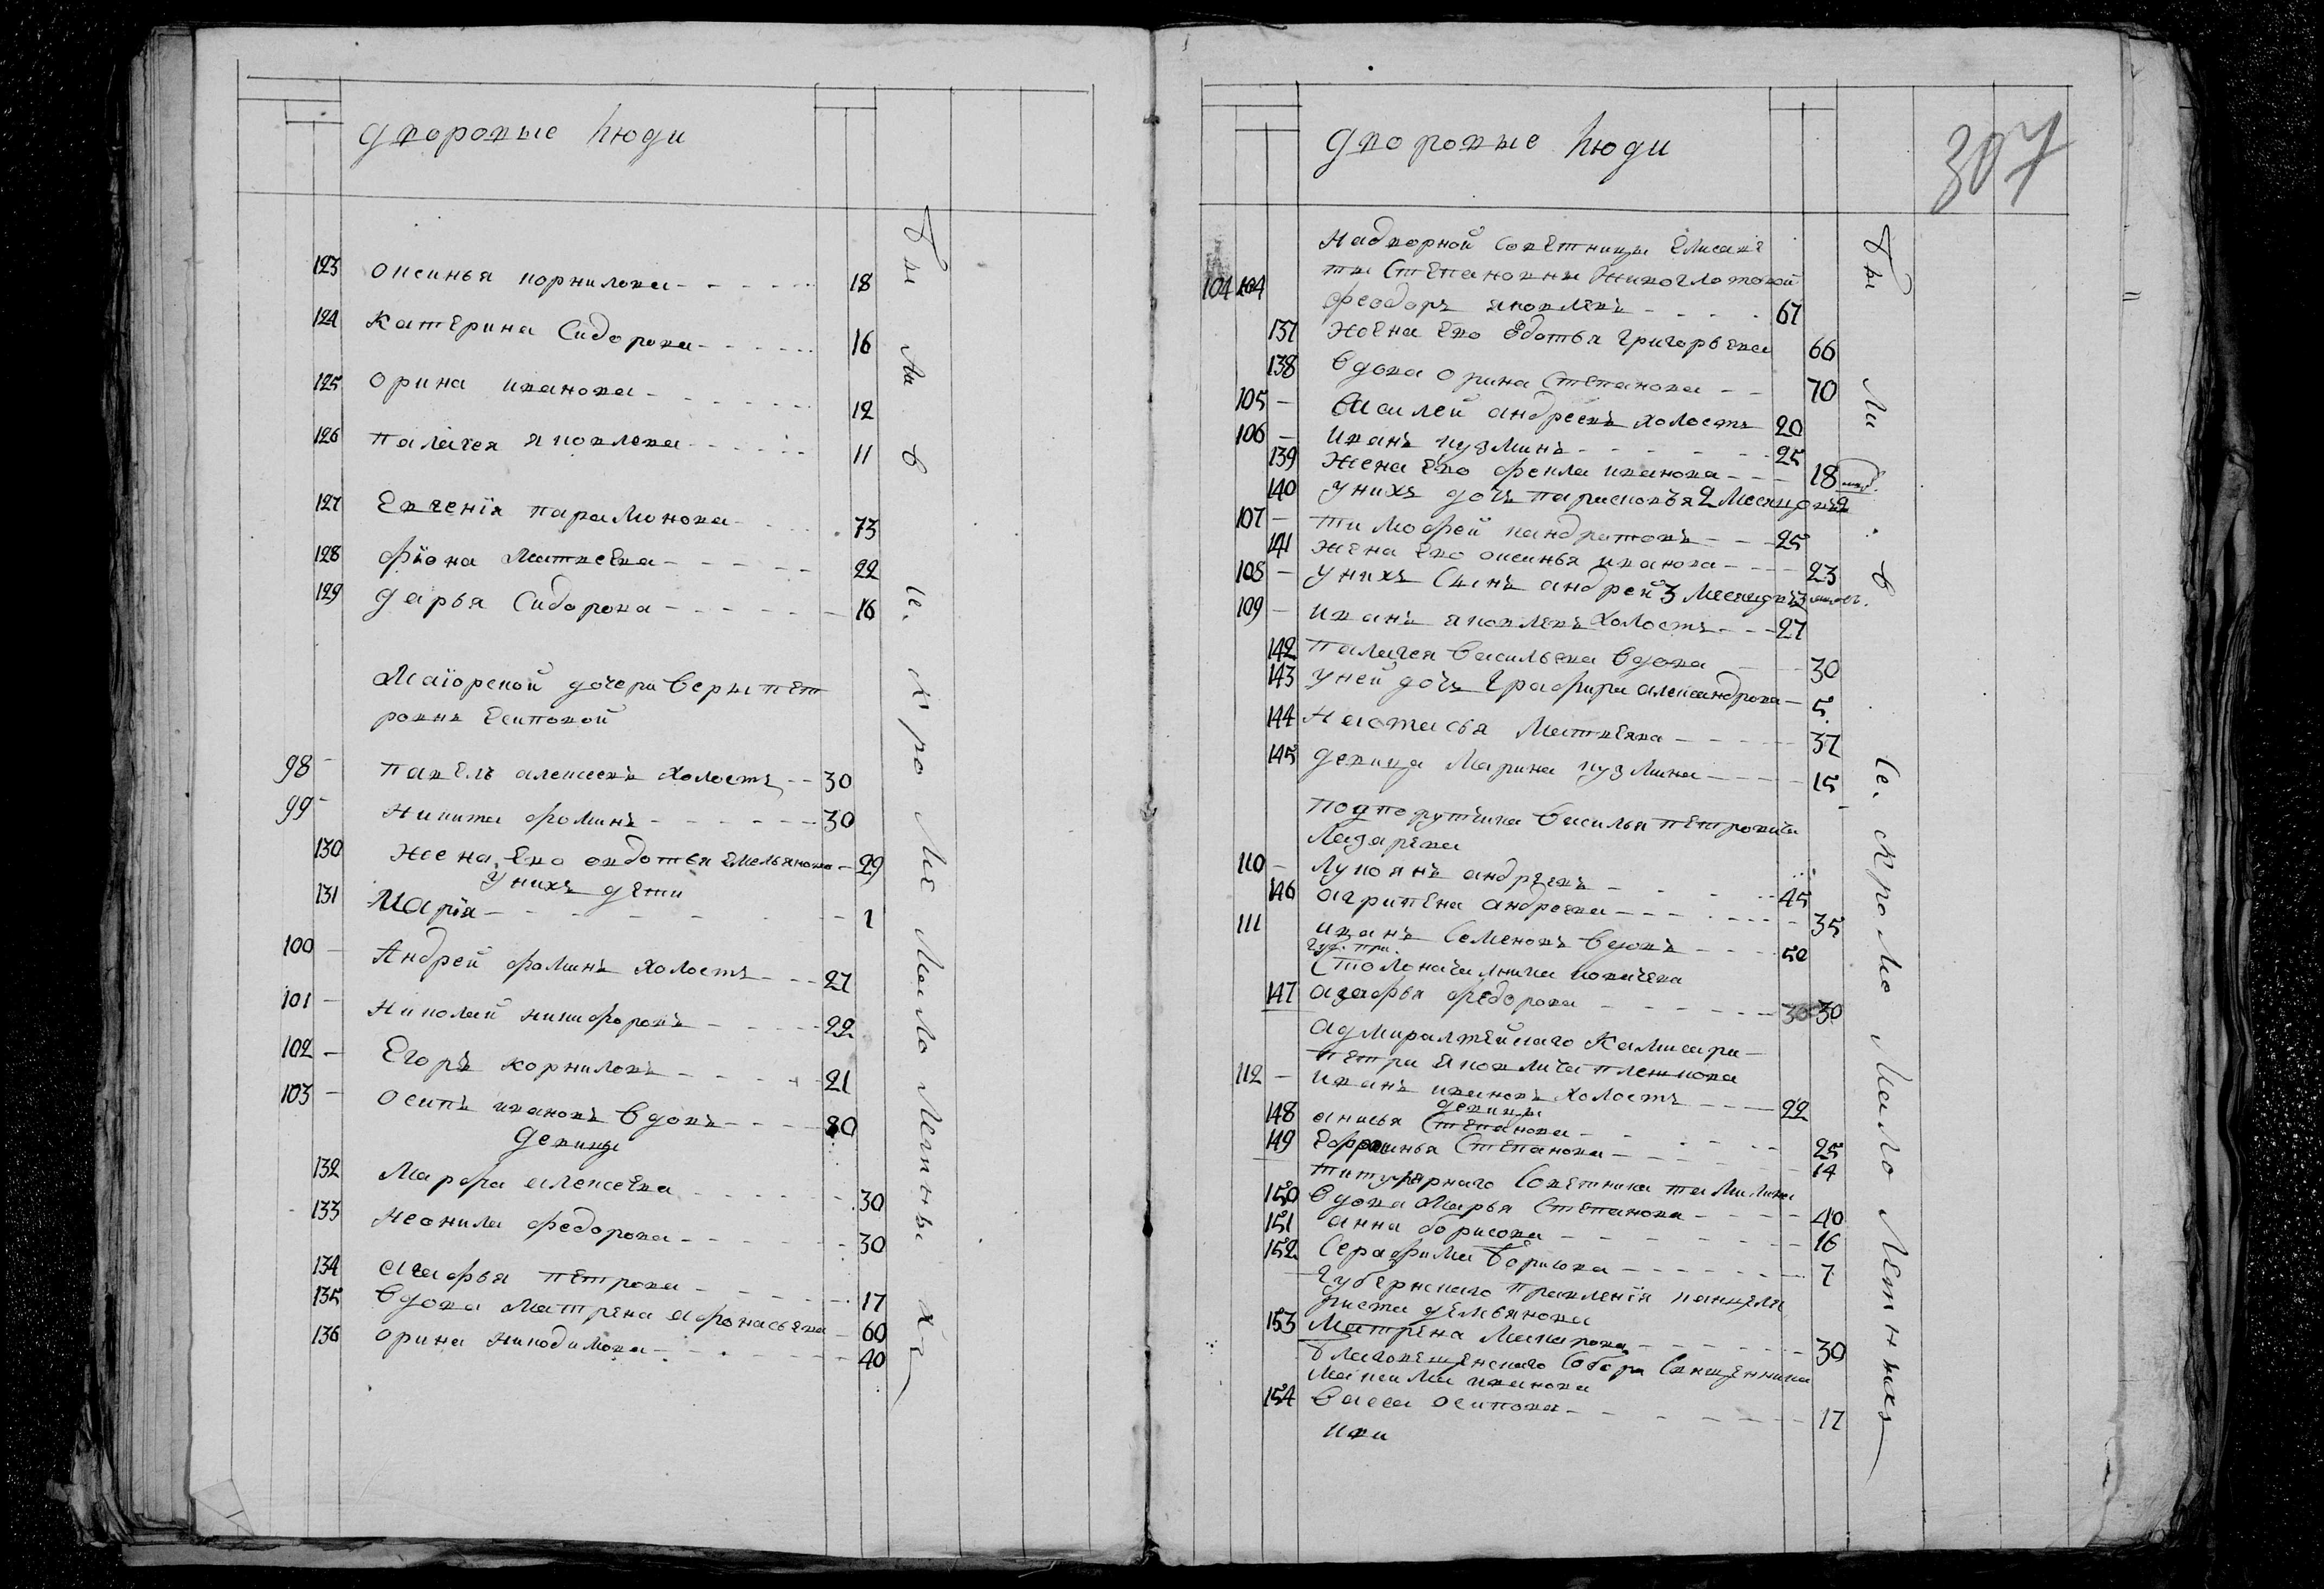 дворовые люди
123 оксинья корнилова 18
124 Катерина Сидорова 16
125 орина иванова 12
126 палагея яковлева 11
127 Евгенїя парамонова 73
128 фїона Матвеева 22
129 дарья Сидорова 16
Маїорской дочери Веры пет
ровны Есиповой
98 павелъ алексеевъ холостъ 30
99 Никита фоминъ 30
130 Жена Ево авдотья Емельянова 29
У нихъ дети
131 Марїя 1
100 Андрей фоминъ холостъ 27
101 Николай никифоровъ 22
102 Егоръ корниловъ 21
103 Осипъ ивановъ вдовъ 80
девицы
132 Марфа алексеева 30
133 Неонила федорова 30
134 агафья петрова 17
135 Вдова матрена афонасьева 60
136 орина никодимова 40
были в ис.
дворовые люди
307
Надворной Советницы Елисаве
ты Степановны Живоглотовой
104 104 феодоръ яковлевъ 67
137 Жена Ево Едотья григорьева 66
138 Вдова орина Степанова 70
105 Василей андреевъ холостъ 20
106 иванъ кузминъ 25
139 Жена Ево фекла иванова 18
140 У нихъ дочь парасковья 2 Месяцовъ 2
107 тимофей кандратовъ 25
141 Жена Ево оксинья иванова 23
108 У нихъ Сынъ андрей 3 Месяцовъ 3
109 иванъ яковлевъ холостъ 27
142 палагея Васильева вдова 30
143 У ней дочь Графира александрова 5
144 Настасья Матвеева 37
145 девица Марина кузмина 15
подпорутчика Василья петровича
Лазарева
110 Лукоянъ андреевъ 45
146 агрипена андреева 35
111 иванъ Семеновъ вдовъ 50
Губ. пра.
Столоначалника
147 агафья федорова 30 30
адмиралтейскаго Камисара
петра яковлича плешкова
112 иванъ ивановъ холостъ 22
девицы
148 анисья Степанова 25
149 Ефросинья Степанова 14
титулярнаго Советника
150 Вдова Марья Степанова 40
151 анна борисова 16
152 Серафима борисова 7
Губернскаго правленїя канцеля
риста демьянова
153 Матрена Макарова 30
благовещенскаго Собора Священника
Максима иванова
154 Васса осипова 17